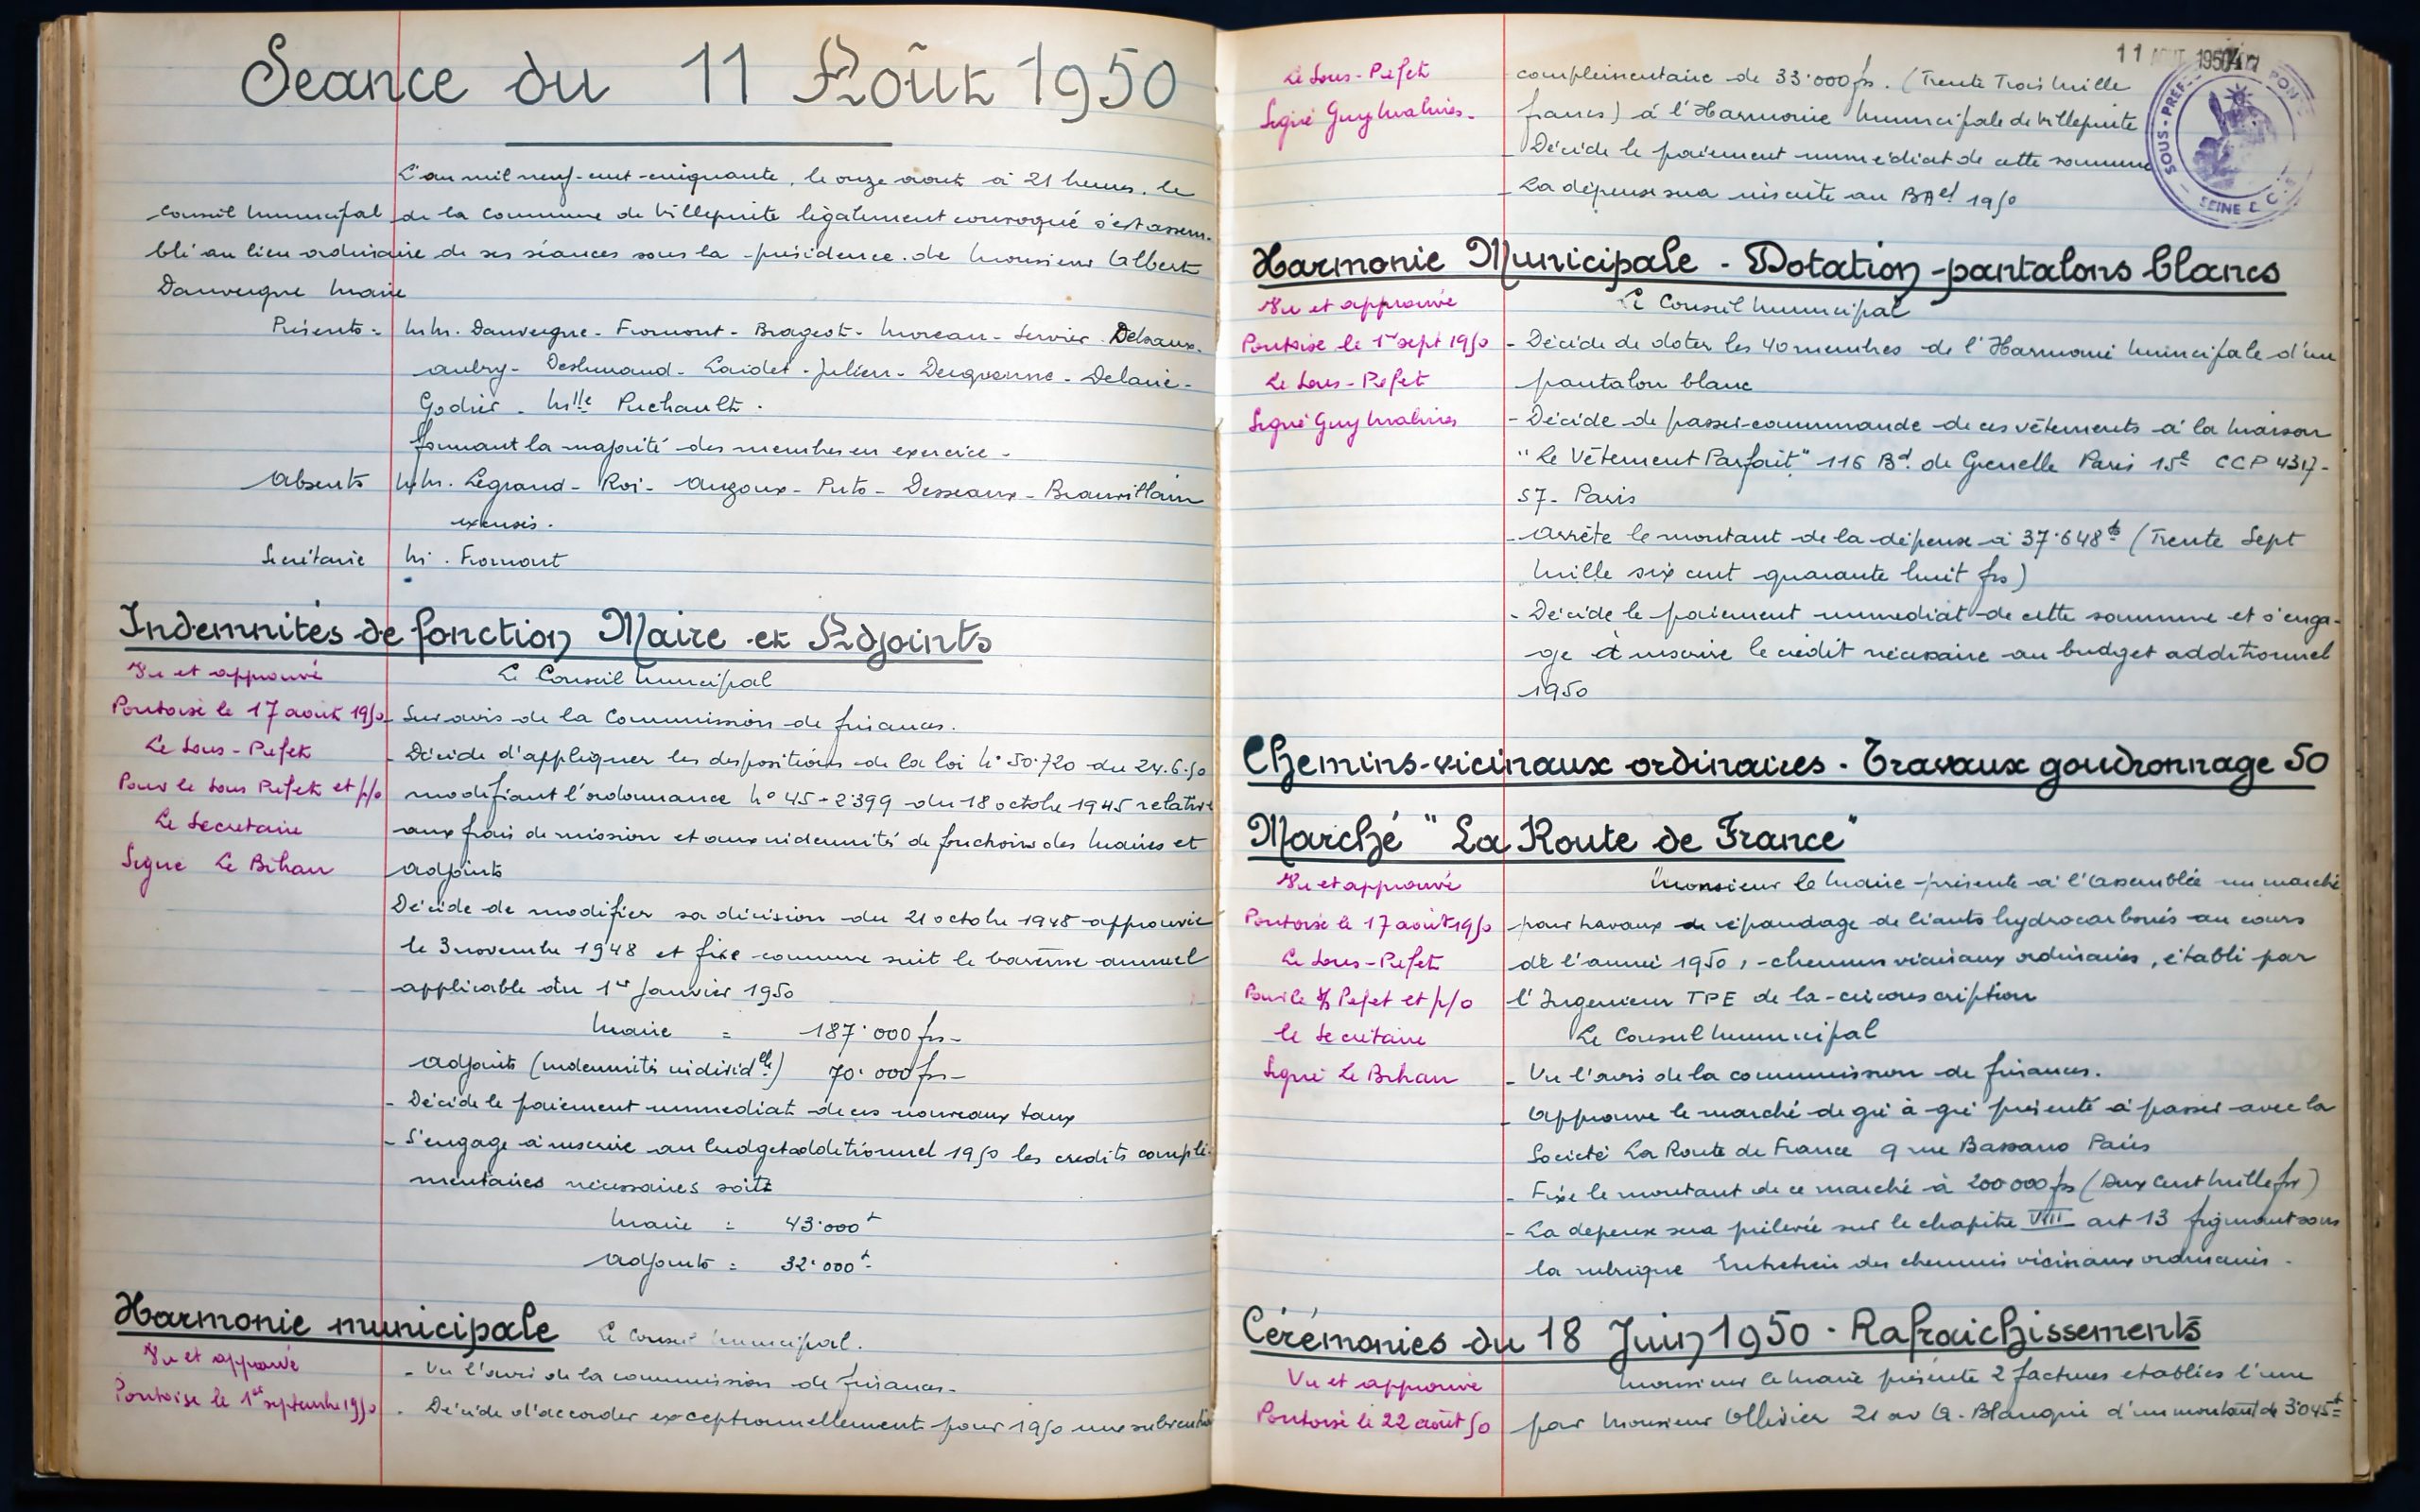 Séance du 11 Août 1950
L'an mil neuf-cent-cinquante, le onze août à 21 heures, le
Conseil Municipal de la Commune de Villepinte légalement convoqué s'est assem-
blé au lieu ordinaire de ses séances sous la présidence de Monsieur Albert
Dauvergne Maire
Présents = MM. Dauvergne - Fromont - Brageot - Moreau - Servier - Delsaux -
Aubry - Deshmaud - Laidet - Julien - Decquenne - Delavie -
Godier - Mlle Puchault.
formant la majorité des membres en exercice -
Absents MM. Legrand - Roi - Auzoux - Puto - Desseaux - Beauvillain
excusés.
Secrétaire M. Fromont
Indemnités de fonction Maire et Adjoints
Vu et approuvé
Pontoise le 17 août 1950
Le Sous-Préfet
Pour le Sous Préfet et p/o
Le Secrétaire
Signé Le Bihan
Le Conseil Municipal
- Sur avis de la Commission de finances.
- Décide d'appliquer les dispositions de la loi N° 50.720 du 24.6.50
modifiant l'ordonnance N° 45-2399 du 18 octobre 1945 relative
aux frais de mission et aux indemnités de fonctions des Maires et
adjoints
Décide de modifier sa décision du 21 octobre 1948 approuvée
le 3 novembre 1948 et fixe comme suit le barême annuel
applicable du 1er Janvier 1950
Maire = 187.000 frs -
Adjoints (indemnités individelle) 70.000 frs -
- Décide le paiement immédiat de ces nouveaux taux
- S'engage à inscrire au budget additionnel 1950 les crédits complé-
mentaires nécessaires soit
Maire = 43.000 f
Adjoints = 32.000 f
Harmonie municipale Le Conseil Municipal.
Vu et approuvé
Pontoise le 1er septembre 1950
- Vu l'avis de la commission de finances -
- Décide d'accorder exceptionnellement pour 1950 une subvention
11 AOUT 1950
SOUS-PREF. PONT
SEINE & O
Le Sous-Préfet
Signé Guy Malines -
complémentaire de 33.000 frs. (Trente Trois Mille
francs) à l'Harmonie Municipale de Villepinte
- Décide le paiement immédiat de cette somme
- La dépense sera inscrite au BAel 1950
Harmonie Municipale - Dotation pantalons blancs
Vu et approuvé
Pontoise le 1er sept 1950
Le Sous-Préfet
Signé Guy Malines
Le Conseil Municipal
- Décide de doter les 40 membres de l'Harmonie Municipale d'un
pantalon blanc
- Décide de passer commande de ces vêtements à la Maison
"Le Vêtement Parfait" 116 Bd. de Grenelle Paris 15e CCP 4317-
57 - Paris
- Arrête le montant de la dépense à 37.648 fs (Trente Sept
Mille six cent quarante huit frs)
- Décide le paiement immédiat de cette somme et s'enga-
ge à inscrire le crédit nécessaire au budget additionnel
1950
Chemins-vicinaux ordinaires - Travaux goudronnage 50
Marché "La Route de France"
Vu et approuvé
Pontoise le 17 août 1950
Le Sous-Préfet
Pour le S/Pefet et p/o
le Secrétaire
Signé Le Bihan
Monsieur le Maire présente à l'Assemblée un marché
pour travaux de répandage de liants hydrocarbonés au cours
de l'année 1950, - chemins vicinaux ordinaires, établi par
l'Ingenieur TPE de la circonscription
Le Conseil Municipal
- Vu l'avis de la commission de finances.
- Approuve le marché de gré à gré présenté à passer avec la
Société La Route de France 9 rue Bassano Paris
- Fixe le montant de ce marché à 200 000 frs (Deux Cent Mille frs)
- La dépense sera prélevée sur le chapitre VIII art 13 figurant sous
la rubrique Entretien des chemins vicinaux ordinaires.
Cérémonies du 18 Juin 1950 - Rafraichissements
Vu et approuvé
Pontoise le 22 août 50
Monsieur le Maire présente 2 factures établies l'une
par Monsieur Ollivier 21 av A. Blanqui d'un montant de 3.045 f